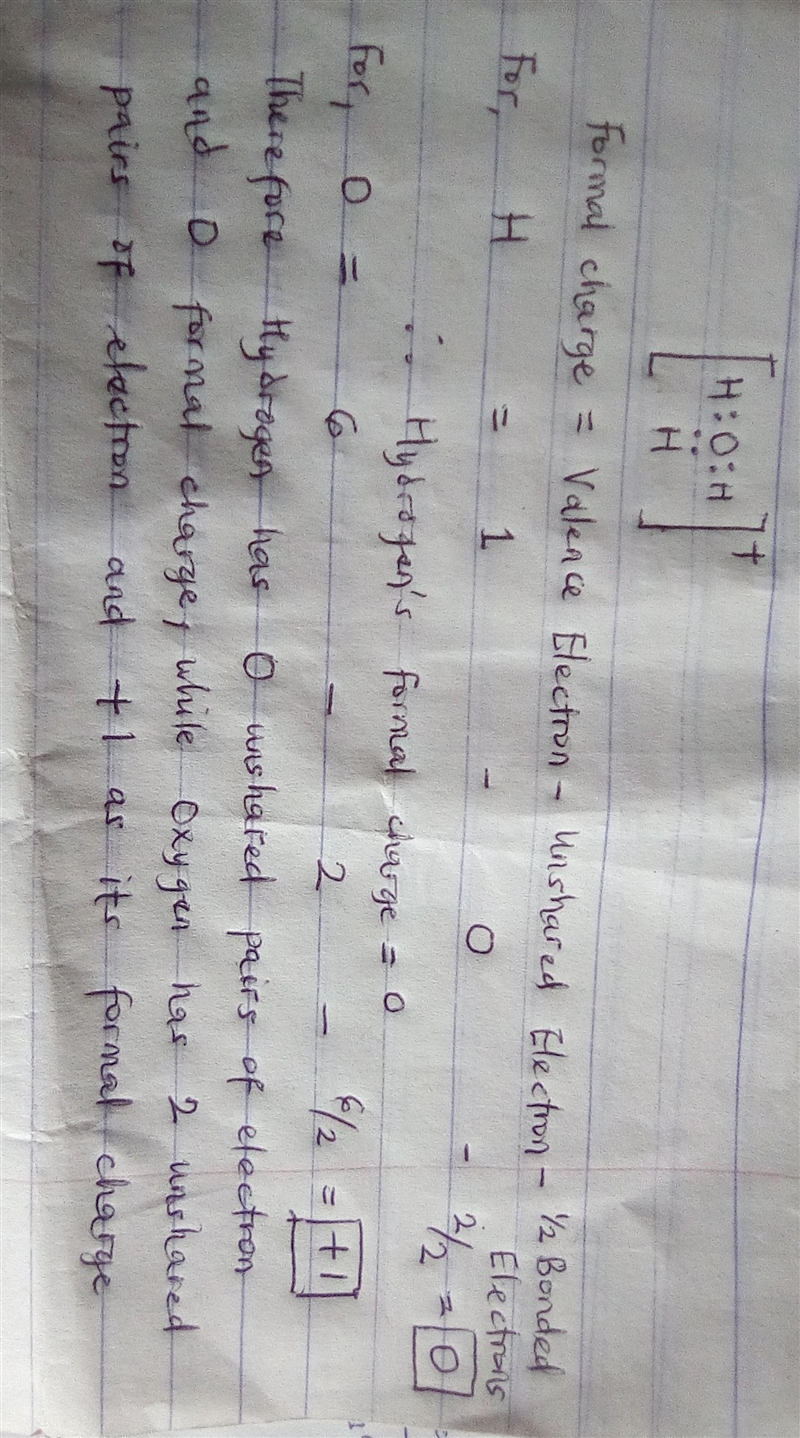 [H:O:H]+
H
Formal charge = Valence Electron - Unshared Electron - 1/2 Bonded
Electrons
For, H = 1 - 0 - 2/2 = 0
∴ Hydrogen's formal charge = 0
For, O = 6 - 2 - 6/2 = +1
Therefore Hydrogen has 0 unshared pairs of electron
and 0 formal charge, while Oxygen has 2 unshared
pairs of electron and +1 as its formal charge